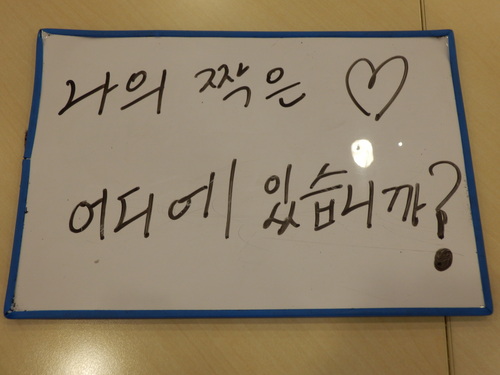 나의 짝은 ♡
어디에 있습니까?